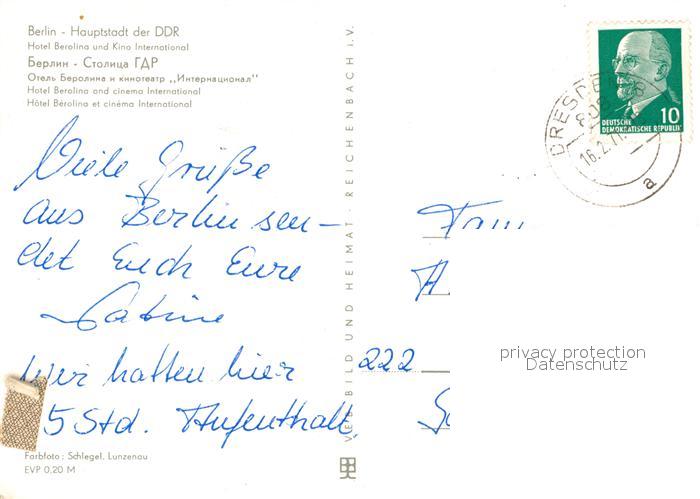 Berlin - Hauptstadt der DDR
Hotel Berolina und Kino International
Берлин - Столица ГДР
Отель Беролина и кинотеатр „Интернационал"
Hotel Berolina and cinema International
Hôtel Bérolina et cinéma International
Viele Grüße
aus Berlin sen-
det Euch Eure
Sabine
wir hatten hier
5 Std. Aufenthalt.
Farbfoto: Schlegel, Lunzenau
EVP 0,20 M
VEB BILD UND HEIMAT REICHENBACH i.V.
DRESDEN
808
16.2.71
a
10
DEUTSCHE
DEMOKRATISCHE REPUBLIK
Fam
222
privacy protection
Datenschutz